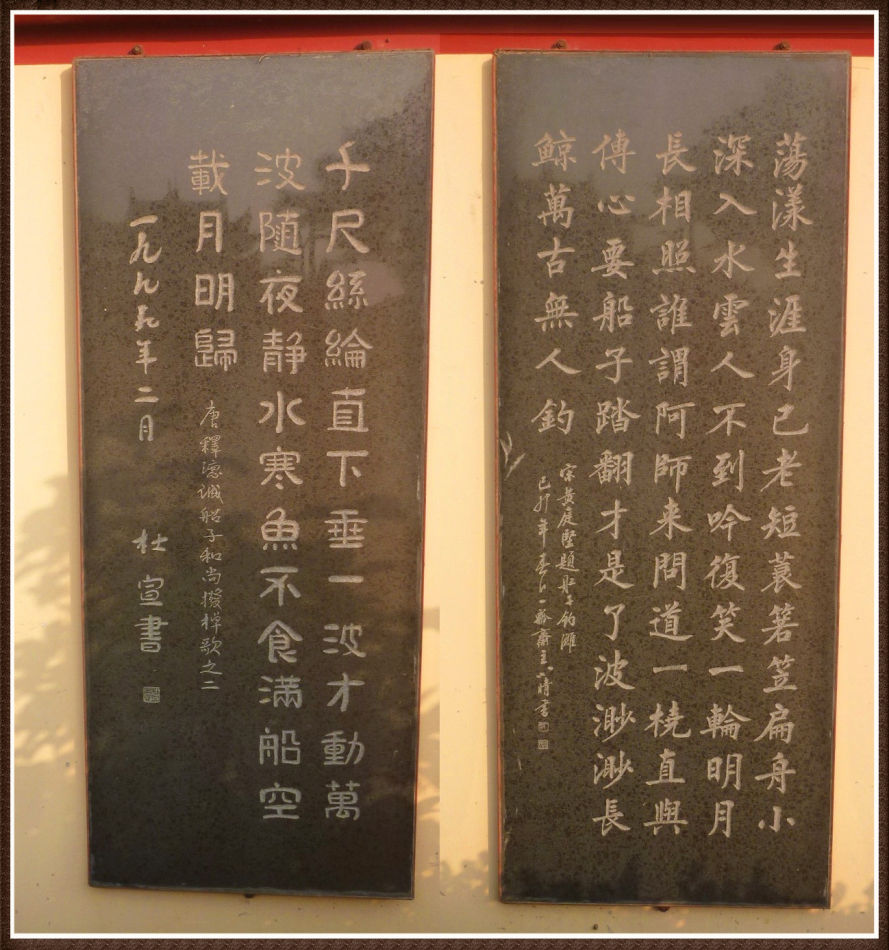 蕩漾生涯身已老短蓑箬笠扁舟小
深入水雲人不到吟復笑一輪明月
長相照誰謂阿師来問道一橈直與
傳心要船子踏翻才是了波渺渺長
鲸萬古無人釣
宋黄庭堅題 釣灘
己卯年春 齋主 晴書
千尺絲綸直下垂一波才動萬
波随夜静水寒魚不食满船空
載月明歸
唐釋德诚船子和尚撥棹歌之二
一九九九年二月
杜宣書